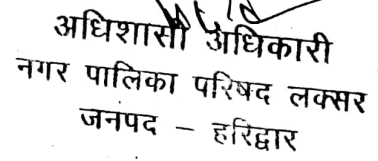 अधिशासी अधिकारी
नगर पालिका परिषद लक्सर
जनपद – हरिद्वार